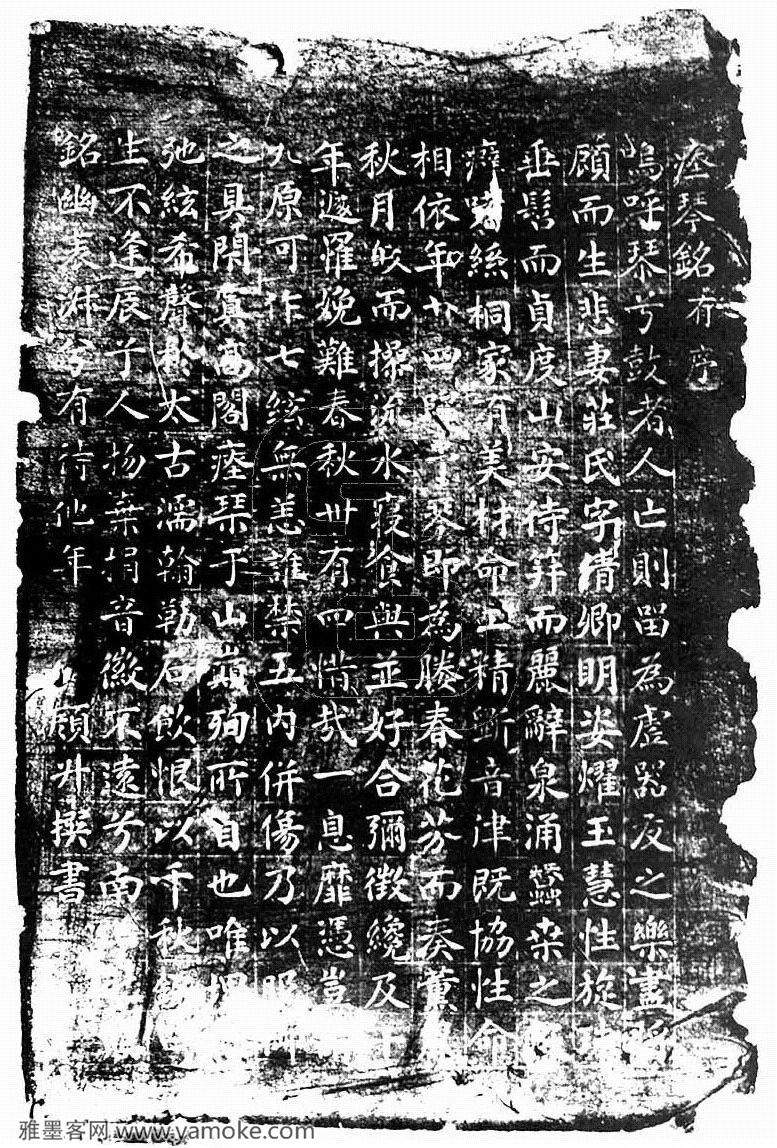 瘞琴銘 有序
嗚呼琴兮鼓者人亡則留為虛器及之樂盡
顧而生悲妻莊氏字倩卿明姿燿玉慧性旋
垂髫而貞度山安待笄而麗辭泉涌蠶桑之
癖嗜絲桐家有美材命工精斲音津既協性命
相依年廿四 琴即為媵春花芬而奏薰
秋月皎而操流水寢食與並好合彌徵纔及
年遽罹娩難春秋卅有四惜哉一息靡憑豈
九原可作七絃無恙誰禁五內併傷乃以
之具閉寘高閣瘞琴于山巔殉所自也唯
弛絃希聲於太古濡翰勒石飲恨以千秋銘
生不逢辰兮人物棄捐音徽不遠兮南
銘幽表淋兮有待他年 顧升撰書
雅墨客网 www.yamoke.com